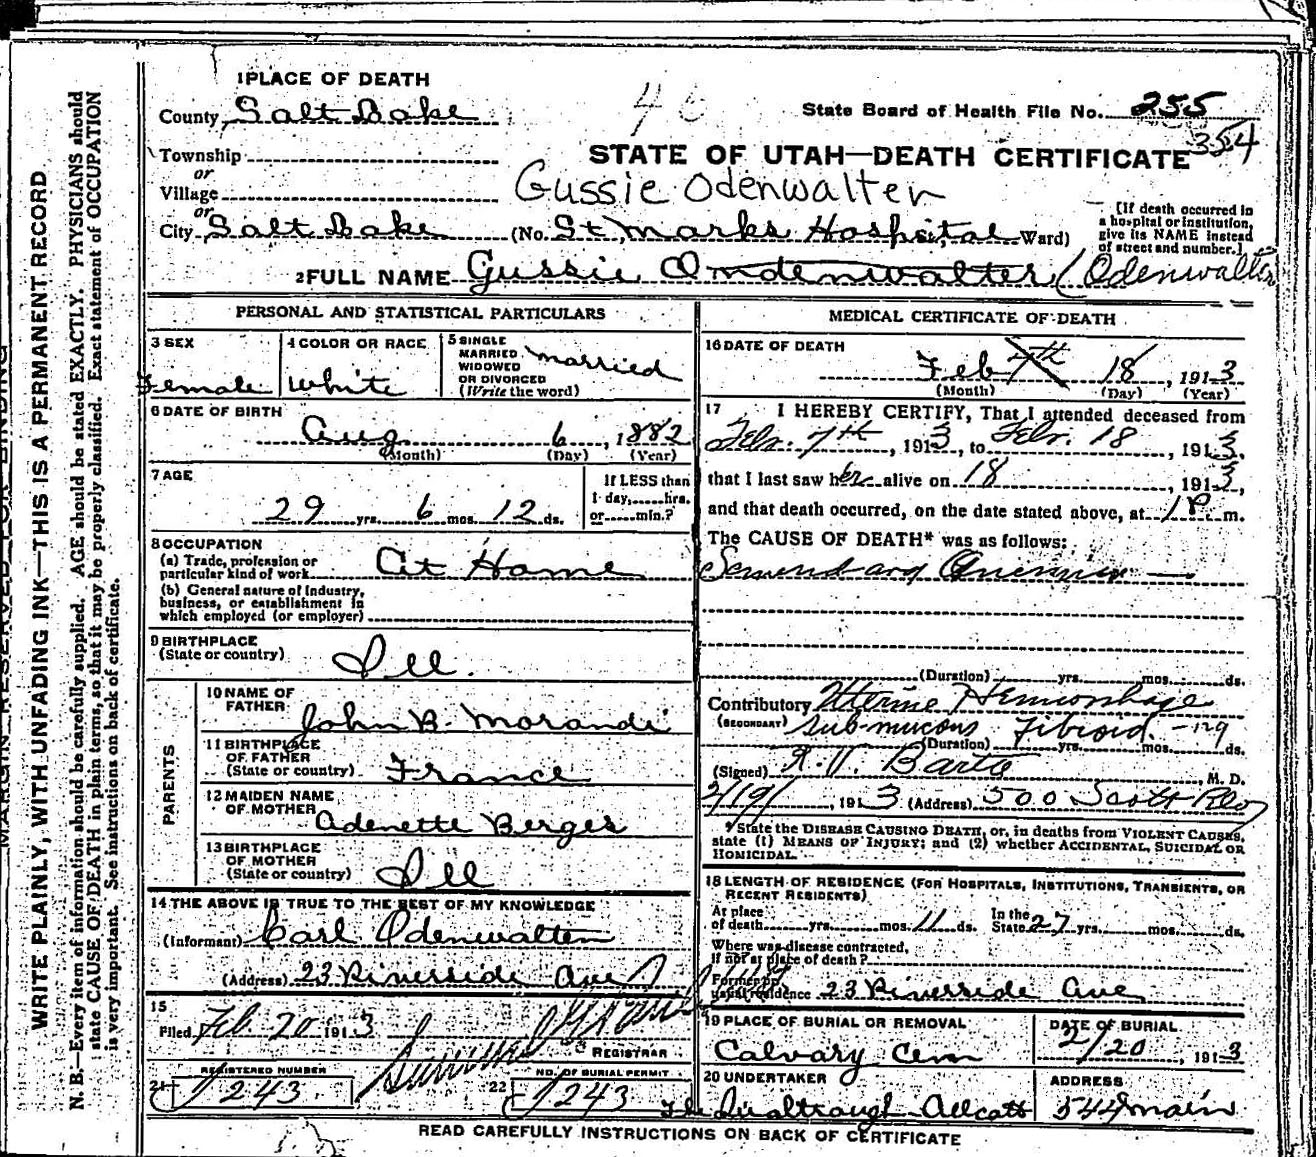 1 PLACE OF DEATH
County Salt Lake
Township
or
Village
or
City Salt Lake (No. St Marks Hospital Ward)
46
State Board of Health File No. 255
354
STATE OF UTAH—DEATH CERTIFICATE
Gussie Odenwalter
[If death occurred in
a hospital or institution,
give its NAME instead
of street and number.]
2 FULL NAME Gussie Omdenwalter (Odenwalter
PERSONAL AND STATISTICAL PARTICULARS
3 SEX
Female
4 COLOR OR RACE
White
5 SINGLE
MARRIED
WIDOWED
OR DIVORCED
(Write the word)
married
6 DATE OF BIRTH
Aug 6, 1882
(Month) (Day) (Year)
7 AGE
29 yrs. 6 mos. 12 ds.
If LESS than
1 day, hrs.
or min.?
8 OCCUPATION
(a) Trade, profession or
particular kind of work At Home
(b) General nature of industry,
business, or establishment in
which employed (or employer)
9 BIRTHPLACE
(State or country) Ill.
PARENTS
10 NAME OF
FATHER John B. Morandi
11 BIRTHPLACE
OF FATHER
(State or country) France
12 MAIDEN NAME
OF MOTHER Adenette Berges
13 BIRTHPLACE
OF MOTHER
(State or country) Ill
14 THE ABOVE IS TRUE TO THE BEST OF MY KNOWLEDGE
(Informant) Carl Odenwalter
(Address) 23 Riverside Ave
15
Filed Feb 20 1913
REGISTRAR
REGISTERED NUMBER
21 243
22 NO. OF BURIAL PERMIT
243
MEDICAL CERTIFICATE OF DEATH
16 DATE OF DEATH
Feb 7th 18, 1913
(Month) (Day) (Year)
17 I HEREBY CERTIFY, That I attended deceased from
Febr. 7th, 1913, to Febr. 18, 1913,
that I last saw her alive on 18, 1913,
and that death occurred, on the date stated above, at 1 P m.
The CAUSE OF DEATH* was as follows:
(Duration) yrs. mos. ds.
Contributory Uterine Hemorrhage
(SECONDARY) Sub-mucous Fibroid. - 129
(Duration) yrs. mos. ds.
(Signed) R. V. Barta, M. D.
2/19/, 1913 (Address) 500 Scott Bldg
*State the DISEASE CAUSING DEATH, or, in deaths from VIOLENT CAUSES,
state (1) MEANS OF INJURY; and (2) whether ACCIDENTAL, SUICIDAL OR
HOMICIDAL.
18 LENGTH OF RESIDENCE (FOR HOSPITALS, INSTITUTIONS, TRANSIENTS, OR
RECENT RESIDENTS)
At place
of death yrs. mos. 11 ds.
In the
State 27 yrs. mos. ds.
Where was disease contracted,
if not at place of death?
Former or
usual residence 23 Riverside Ave
19 PLACE OF BURIAL OR REMOVAL
Calvary Cem
DATE OF BURIAL
2/20, 1913
20 UNDERTAKER
ADDRESS
544 Main
READ CAREFULLY INSTRUCTIONS ON BACK OF CERTIFICATE
MARGIN RESERVED FOR BINDING
WRITE PLAINLY, WITH UNFADING INK—THIS IS A PERMANENT RECORD
N. B.—Every item of information should be carefully supplied. AGE should be stated EXACTLY. PHYSICIANS should
state CAUSE OF DEATH in plain terms, so that it may be properly classified. Exact statement of OCCUPATION
is very important. See instructions on back of certificate.